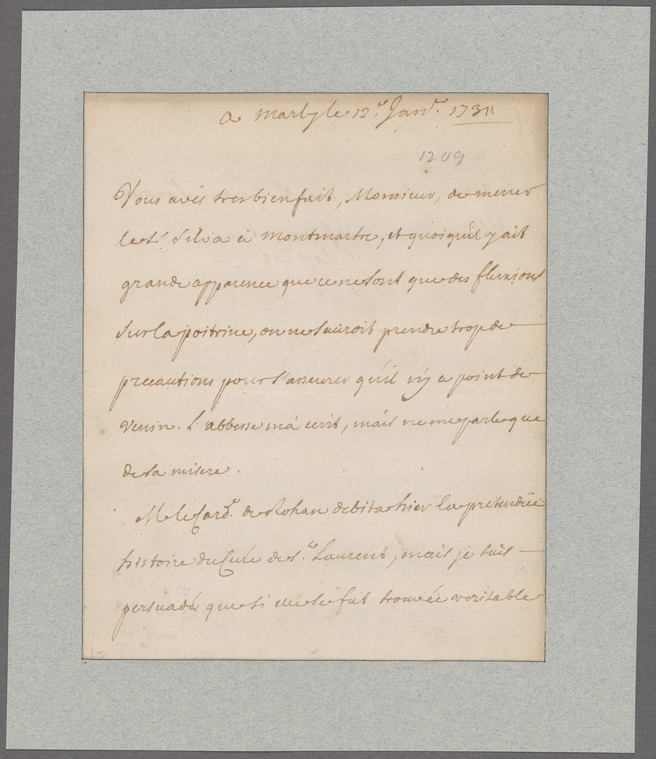 a marly le 12.e Janv.er 1731
1209
Vous avés tres bien fait, Monsieur, de mener
le Sr. Silva à Montmartre, et quoiqu'il y ait
grande apparence que ce ne sont que des fluxions
sur la poitrine, on ne sauroit prendre trop de
precautions pour s'asseurer qu'il n'y a point de
venin. L'abbesse m'a écrit, mais ne me parle que
de sa misere.
M. le Card.l de Rohan debita hier la prétendüe
histoire du Curé de S.t Laurent, mais je suis
persuadé que si elle se fut trouvée veritable